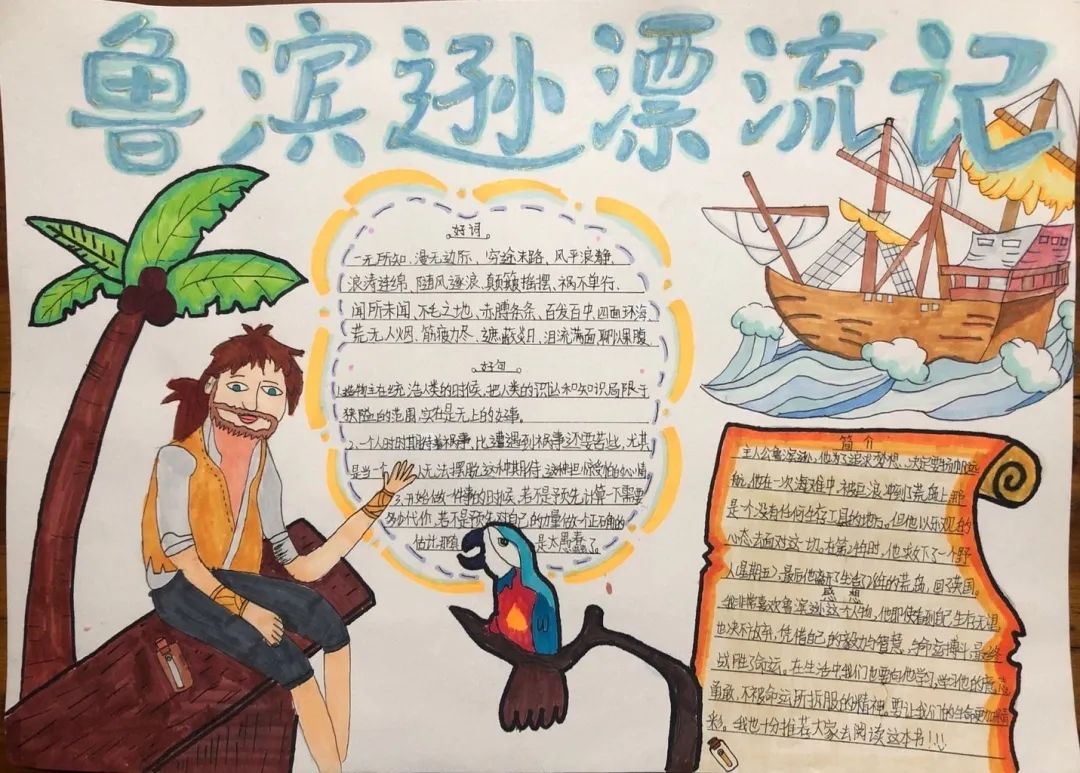 鲁滨逊漂流记
好词
一无所知、漫无边际、穷途末路、风平浪静、
浪涛连绵、随风逐浪、颠簸摇摆、祸不单行、
闻所未闻、不毛之地、赤膊条条、百发百中、四面环海、
荒无人烟、筋疲力尽、遮蔽炎日、泪流满面、聊以果腹
好句
1.造物主在统治人类的时候,把人类的认识和知识局限于
狭隘的范围,实在是无上的好事。
2.一个人时时期待着祸事,比遭遇到祸事还要苦些,尤其
是当一个人无法摆脱这种期待,这种担惊受怕的心情
3.开始做一件事的时候,若不是预先计算一个需要
多少代价,若不是预先对自己的力量做一个正确的
估计,那 是太愚蠢了。
简介
主人公鲁滨逊,他为了追求梦想,决定要扬帆远
航,他在一次海难中,被巨浪冲到荒岛上,那
是个没有任何生存工具的地方。但他以乐观的
心态去面对这一切。在第24年时,他求下了一个野
人(星期五),最后他离开了生活了28年的荒岛,回了英国。
感想
我非常喜欢鲁滨逊这个人物,他即使看到自己生存无望
也决不放弃,凭借自己的毅力与智慧,与命运博斗,最终
战胜了命运。在生活中我们也要向他学习,学习他的意志
勇敢,不被命运所折服的精神。要让我们的生命更加精
彩。我也十分推荐大家去阅读这本书!!!